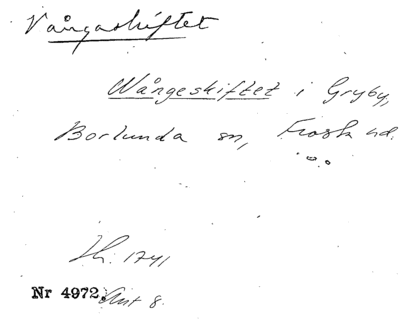 Vångaskiftet
Wångeskiftet i Gryby,
Borlunda sn, Frosta hd.
Th. 1741
Nr 4972. Ant 8.